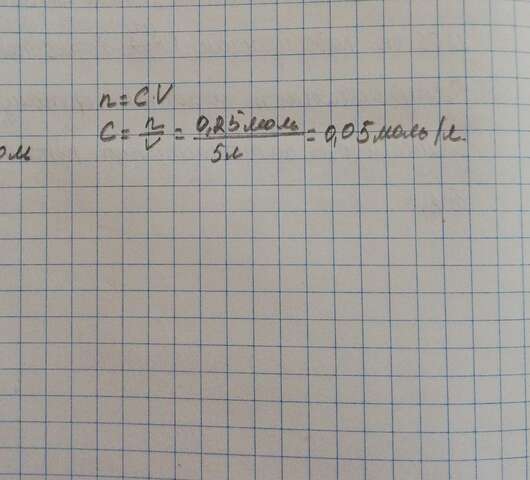 n = C·V
C = n/V = 0,25 моль/5л = 0,05 моль/л.